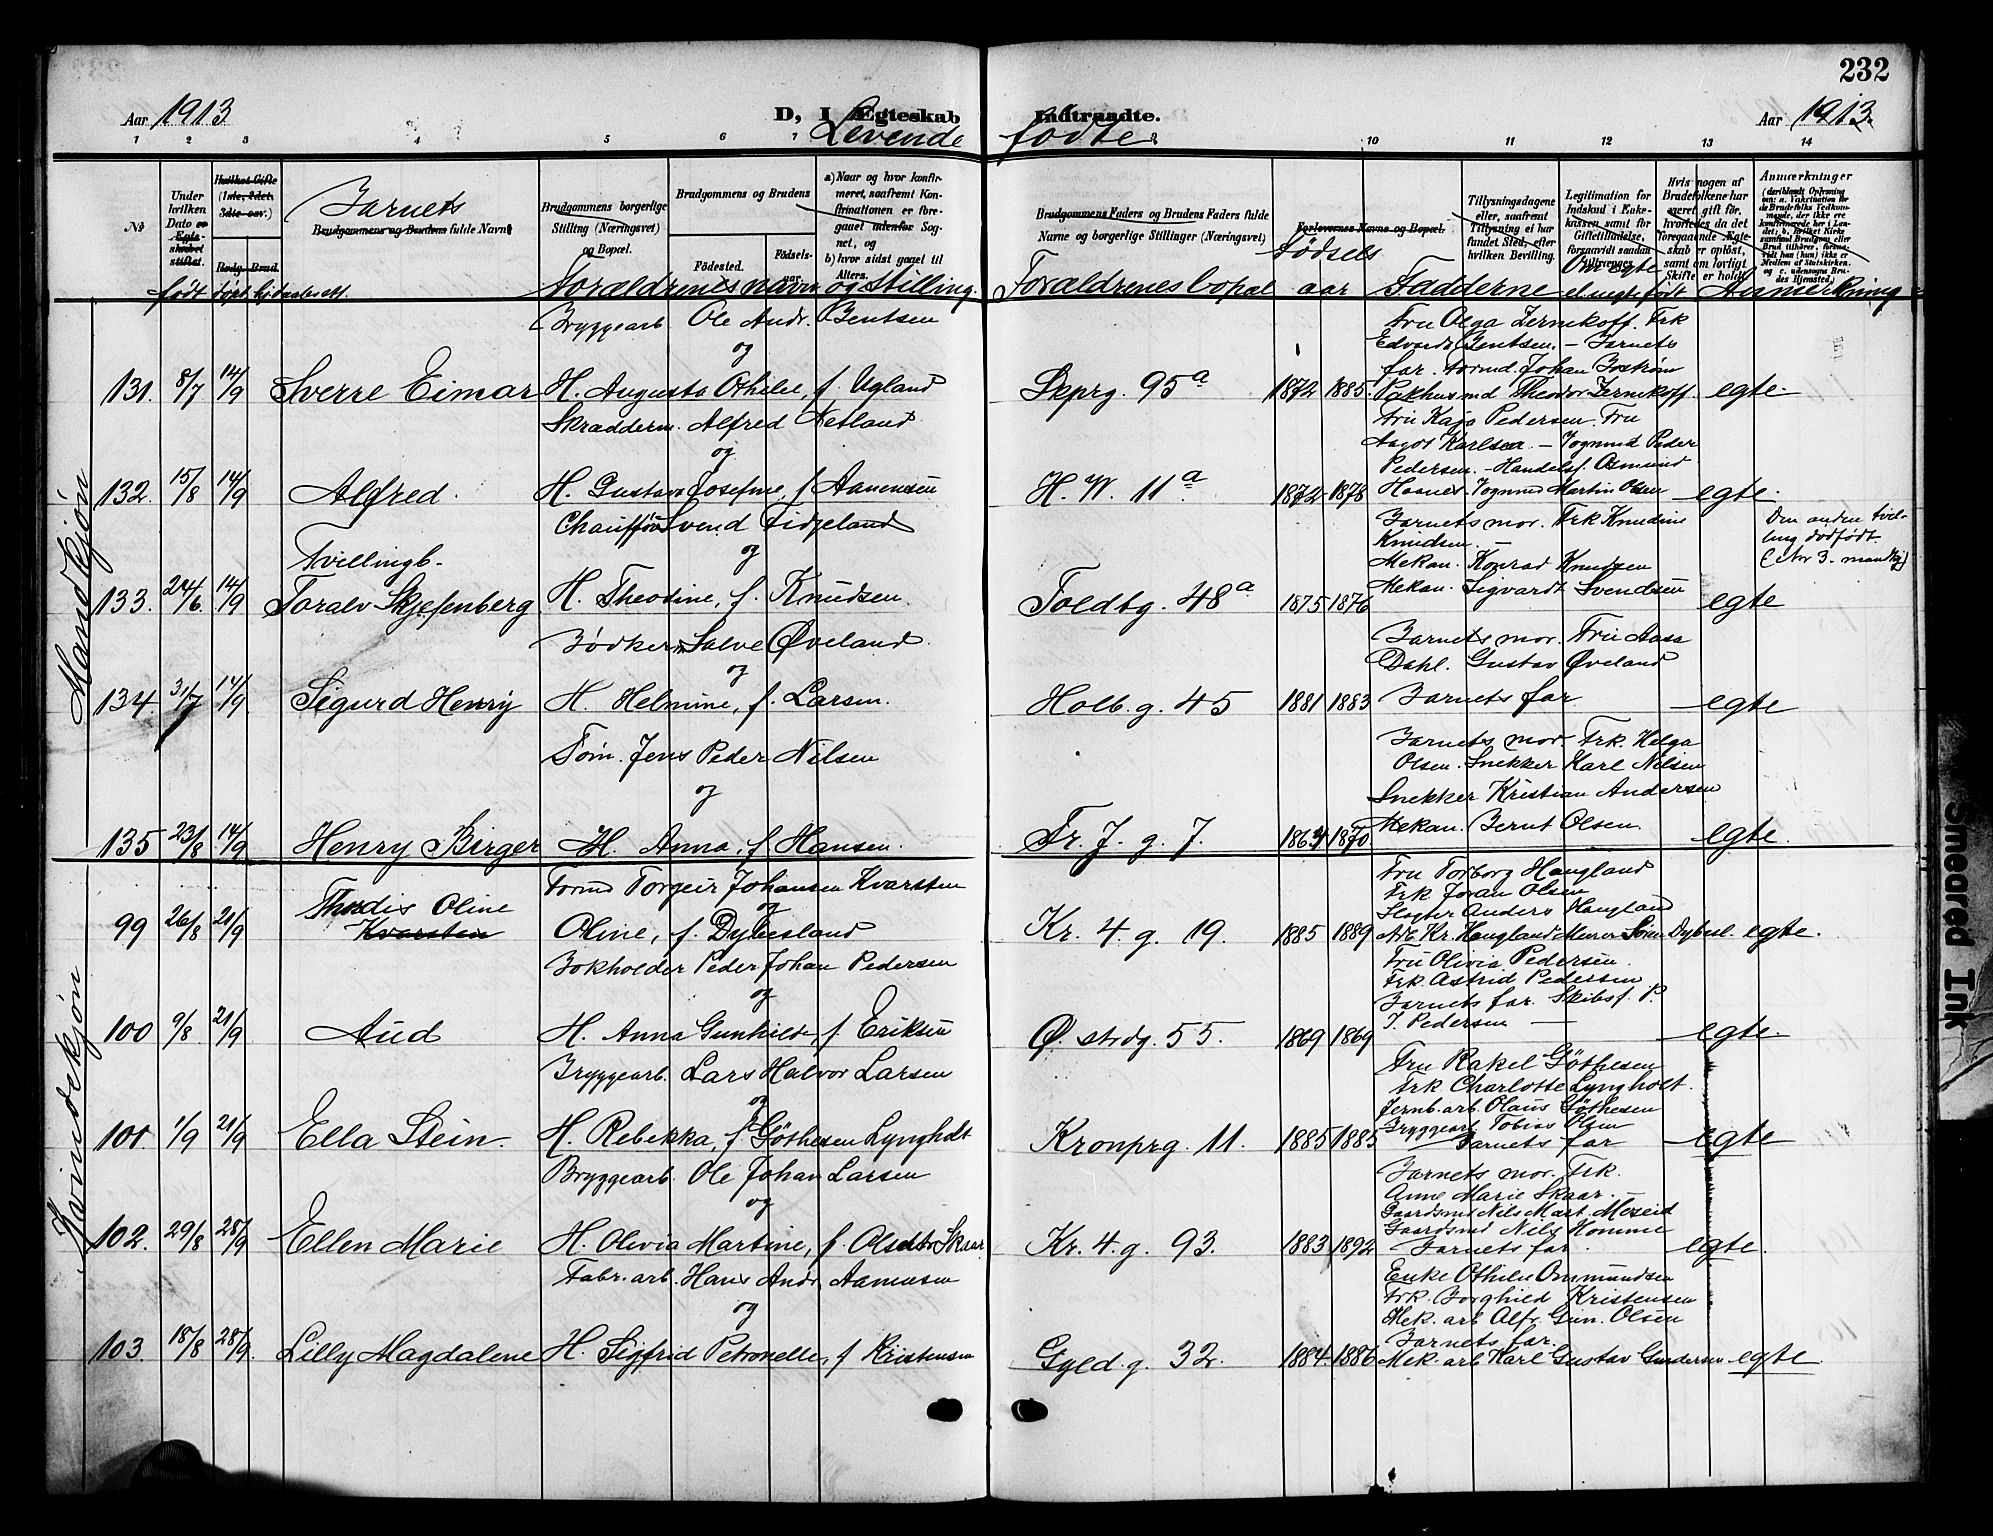 232
Aar 1913
D, I Ægteskab Indtraadte.
Levende fødte
Aar 1913.
1 2 3 4 5 6 7 9 10 11 12 13 14
No
Under hvilken Dato er Egteskabet stiftet.
Hvilket Gifte (1ste, 2det, 3dte osv.)
Brudg. Brud.
Barnets
Brudgommens og Brudens fulde Navn
Brudgommens borgerlige Stilling (Næringsvei) og Bopæl.
Brudgommens og Brudens
Fødested.
Fødsels-aar.
a) Naar og hvor konfirmeret, saafremt Konfirmationen er foregaaet udenfor Sognet, og
b) hvor sidst gaaet til Alters.
Brudgommens Faders og Brudens Faders fulde Navne og borgerlige Stillinger (Næringsvei)
Forlovernes Navne og Bopæl.
Tillysningsdagene eller, saafremt Tillysning ei har fundet Sted, efter hvilken Bevilling.
Legitimation for Indskud i Enkekassen samt for Giftetilladelse, forsaavidt saadan tiltrænges.
Hvis nogen af Brudefolkene har været gift før, hvorledes da det foregaaende Egteskab er opløst, samt om lovligt Skifte er holdt.
Anmærkninger
født døbt hjemdøbt
Forældrenes navn og stilling
Forældrenes bopæl
Fødsels aar
Fadderne
Om egte el. uegte født
Anmerkning
Mandkjøn
Bryggearb. Ole Andr. Bentsen
og
131. 8/7 14/9 Sverre Eimar H. Augusta Othilie, f. Ugland
Skprg. 95a 1872 1885.
Fru Olga Zernikoff. Frk
Edvarda Bentsen. – Barnets
far. Formd. Johan Boström
Pakhusmd Theodor Zernikoff. egte.
Skrædderm. Alfred Netland
og
132. 15/8 14/9 Alfred. H. Gustava Josefine, f. Aanensen
H. W. 11a 1872 1878
Fru Kaja Pedersen. Fru
Aagot Karlsen – Vognmd Peder
Pedersen. – Handelsf. Osmund
Hoanes. Vognmd Martin Olsen egte.
Chauffør Svend Fidjeland
og
Tvillingb.
133. 24/6 14/9 Toralv Skjefenberg H. Theodine, f. Knudsen.
Toldbg. 48a 1875 1876
Barnets mor. Frk Knudine
Knudsen.
Mekan. Konrad Knudsen
Mekan. Sigvardt Svendsen egte
Den anden tvilling dødfødt
(No 3. mandkj)
Bødkerm Salve Øveland.
og
134 31/7 14/9 Sigurd Henry H. Helmine, f. Larsen.
Holb. g. 45 1881 1883
Barnets mor. Fru Aasa
Dahl. Gustav Øveland
Barnets far egte
Tøm. Jens Peder Nilsen
og
135 23/8 14/9 Henry Birger H. Anna, f. Hansen.
Fr. J. g. 7. 1864 1870.
Barnets mor. Frk. Helga
Olsen. Snekker Karl Nilsen
Snekker Kristian Andersen
Mekan. Bernt Olsen. egte.
Kvindekjøn
Formd Torgeir Johansen Kvarsten
og
99 26/8 21/9 Thordis Oline Kvarsten Oline, f. Dybesland
Kr. 4. g. 19. 1885 1889
Fru Torborg Haugland
Frk Joran Olsen
Slagter Anders Haugland
Arb. Kr. Haugland Murer Søren Dybesl. egte.
Bokholder Peder Johan Pedersen
og
100 9/8 21/9 Aud H. Anna Gunhild, f. Eriksen
Ø. strdg. 55. 1869 1869
Fru Olivia Pedersen.
Frk. Astrid Pedersen
Barnets far. Skibsf. P.
J. Pedersen – egte.
Bryggearb. Lars Halvor Larsen
og
101. 1/9 21/9 Ella Stein. H. Rebekka, f. Göthesen Lyngholt
Kronprg. 11. 1885 1885
Fru Rakel Göthesen
Frk Charlotte Lyngholt.
Jernb.arb. Olaus Göthesen
Bryggearb Tobias Olsen
Barnets far egte
Bryggearb Ole Johan Larsen
og
102. 29/8 28/9 Ellen Marie H. Olivia Martine, f. Olsdtr Skaar
Kr. 4. g. 93. 1883 1892
Barnets mor. Frk.
Anne Marie Skaar. –
Gaardsmd Nils Mart. Moseid
Gaardsmd Nils Homme
Barnets far. egte.
Fabr. arb. Hans Andr. Aamensen
og
103. 18/8 28/9 Lilly Magdalene H. Sigfrid Petronelle, f. Kristensen
Gyld. g. 32. 1884 1886
Enke Othilie Ommundsen
Frk. Borghild Kristensen
Mek. arb Alfr. Gun. Olsen
Barnets far.
Mek. arb Karl Gustav Gundersen egte.
Smeared Ink